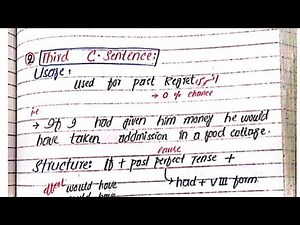 ② Third C. Sentence:
Usage:
used for past Regret
→ 0 % chance
i.e
→ If I had given him money he would
have taken addmission in a good collage.
cause
Structure: If + past perfect Tense +
→ had + VIII form
effect would have